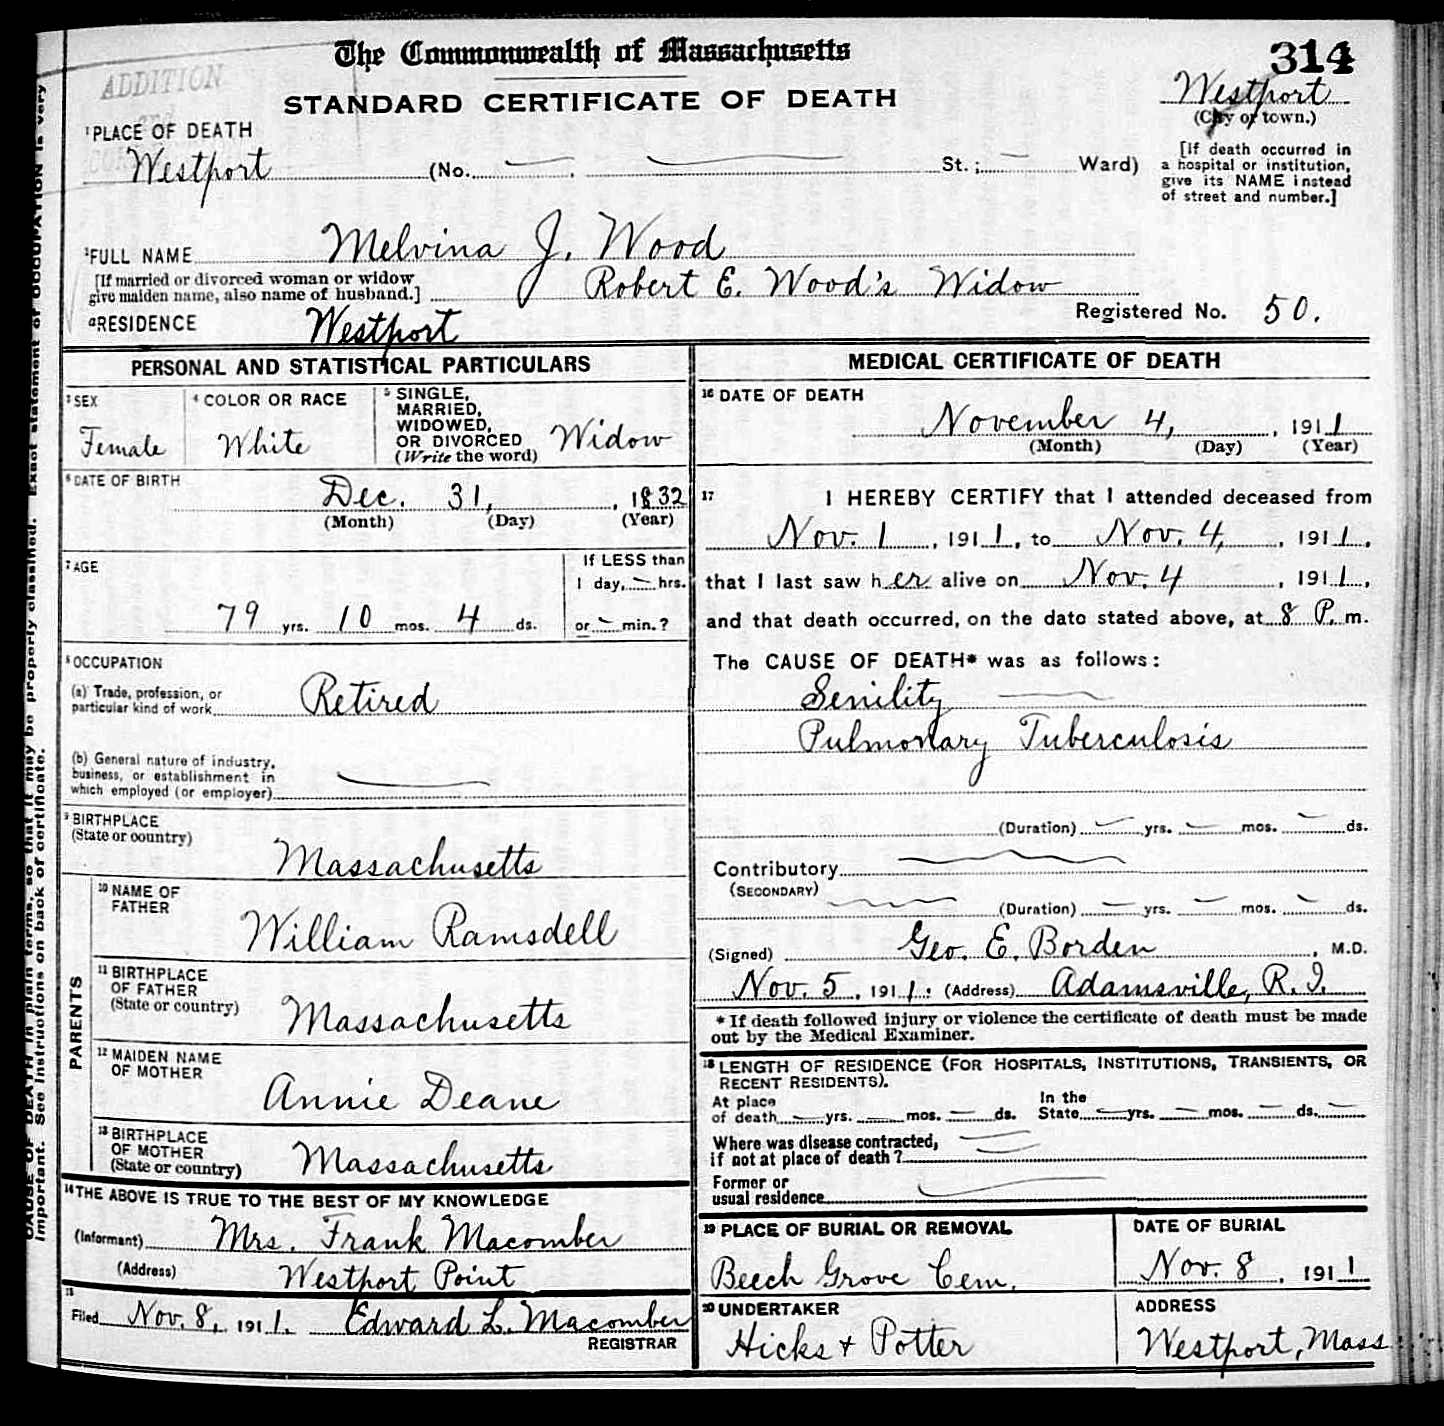 The Commonwealth of Massachusetts
314
ADDITION
STANDARD CERTIFICATE OF DEATH
Westport
(City or town.)
1 PLACE OF DEATH
Westport (No. — . — St.; — Ward)
[If death occurred in
a hospital or institution,
give its NAME instead
of street and number.]
2 FULL NAME Melvina J. Wood
[If married or divorced woman or widow
give maiden name, also name of husband.] Robert E. Wood's Widow
a RESIDENCE Westport
Registered No. 50.
PERSONAL AND STATISTICAL PARTICULARS
3 SEX
Female
4 COLOR OR RACE
White
5 SINGLE,
MARRIED,
WIDOWED,
OR DIVORCED
(Write the word) Widow
6 DATE OF BIRTH
Dec. 31, , 1832
(Month) (Day) (Year)
7 AGE
79 yrs. 10 mos. 4 ds.
If LESS than
1 day, — hrs.
or — min.?
8 OCCUPATION
(a) Trade, profession, or
particular kind of work Retired
(b) General nature of industry,
business, or establishment in
which employed (or employer) —
9 BIRTHPLACE
(State or country)
Massachusetts
PARENTS
10 NAME OF
FATHER
William Ramsdell
11 BIRTHPLACE
OF FATHER
(State or country) Massachusetts
12 MAIDEN NAME
OF MOTHER
Annie Deane
13 BIRTHPLACE
OF MOTHER
(State or country) Massachusetts
14 THE ABOVE IS TRUE TO THE BEST OF MY KNOWLEDGE
(Informant) Mrs. Frank Macomber
(Address) Westport Point
15
Filed Nov. 8, 1911. Edward L. Macomber
REGISTRAR
MEDICAL CERTIFICATE OF DEATH
16 DATE OF DEATH
November 4, , 1911
(Month) (Day) (Year)
17 I HEREBY CERTIFY that I attended deceased from
Nov. 1 , 1911, to Nov. 4, , 1911,
that I last saw her alive on Nov. 4 , 1911,
and that death occurred, on the date stated above, at 8 P. m.
The CAUSE OF DEATH* was as follows:
Senility —
Pulmonary Tuberculosis
(Duration) — yrs. — mos. — ds.
Contributory
(SECONDARY)
(Duration) — yrs. — mos. — ds.
(Signed) Geo. E. Borden , M.D.
Nov. 5 , 1911: (Address) Adamsville, R.I.
* If death followed injury or violence the certificate of death must be made
out by the Medical Examiner.
18 LENGTH OF RESIDENCE (FOR HOSPITALS, INSTITUTIONS, TRANSIENTS, OR
RECENT RESIDENTS).
At place
of death — yrs. — mos. — ds. In the
State — yrs. — mos. — ds. —
Where was disease contracted,
if not at place of death? —
Former or
usual residence —
19 PLACE OF BURIAL OR REMOVAL
Beech Grove Cem.
DATE OF BURIAL
Nov. 8 , 1911
20 UNDERTAKER
Hicks + Potter
ADDRESS
Westport, Mass
CAUSE OF DEATH in plain terms, so that it may be properly classified. Exact statement of OCCUPATION is very
important. See instructions on back of certificate.